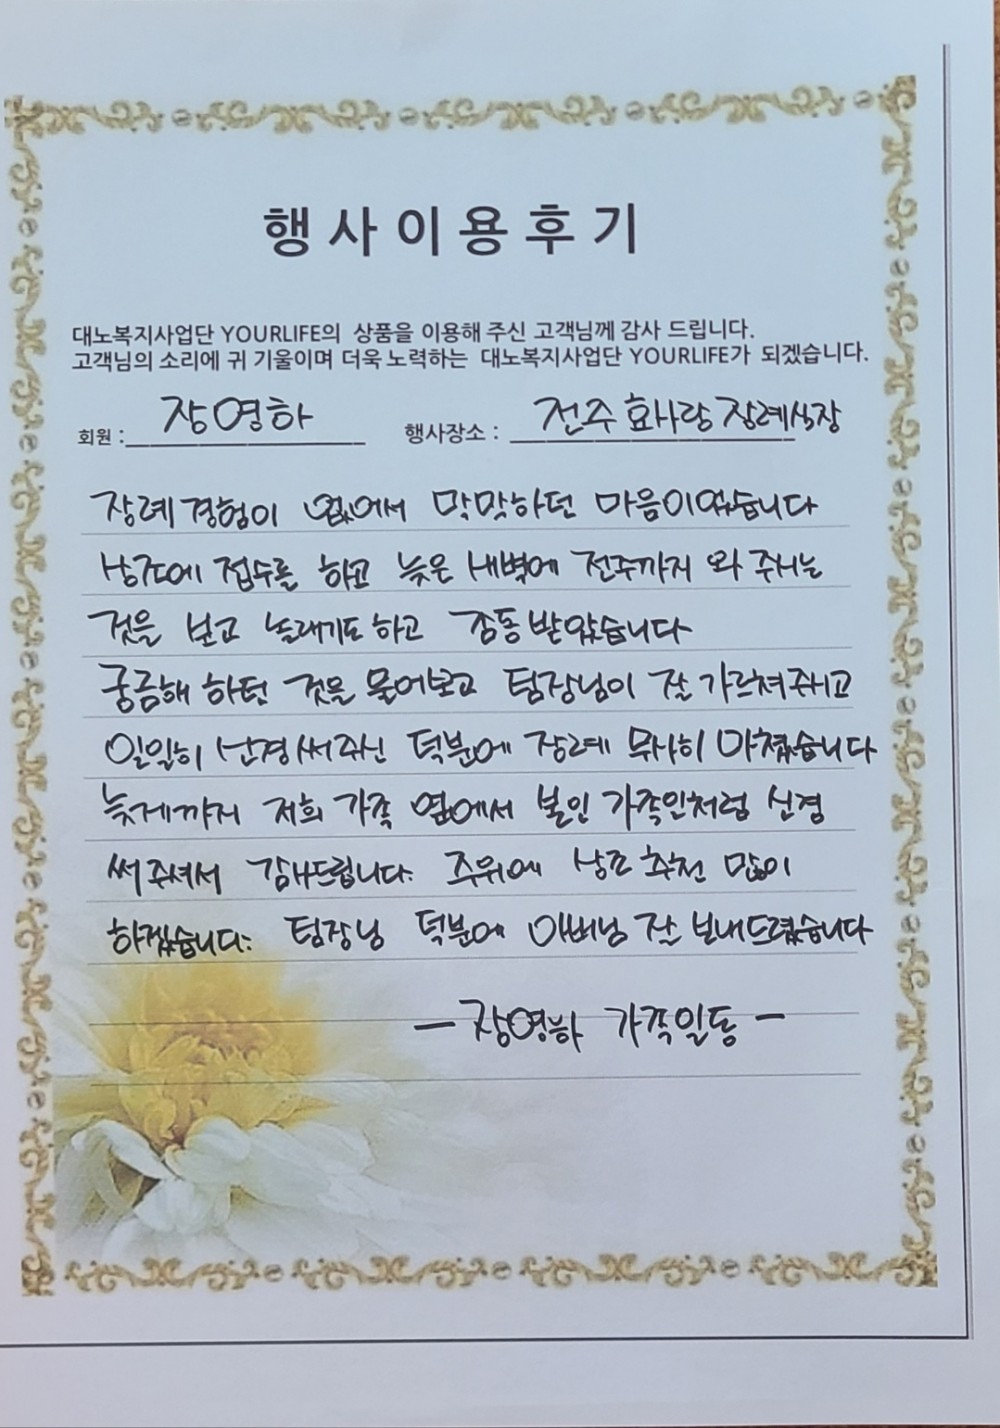 행사이용후기
대노복지사업단 YOURLIFE의 상품을 이용해 주신 고객님께 감사 드립니다.
고객님의 소리에 귀 기울이며 더욱 노력하는 대노복지사업단 YOURLIFE가 되겠습니다.
회원 : 장영하 행사장소 : 전주 효사랑 장례식장
장례 경험이 없어서 막막하던 마음이었습니다
상조에 접수를 하고 늦은 새벽에 전주까지 와 주시는
것을 보고 놀래기도 하고 감동 받았습니다
궁금해 하던 것을 물어보고 팀장님이 잘 가르쳐주시고
일일히 신경써주신 덕분에 장례 무사히 마쳤습니다
늦게까지 저희 가족 옆에서 본인 가족인처럼 신경
써 주셔서 감사드립니다. 주위에 상조 추천 많이
하겠습니다. 팀장님 덕분에 아버님 잘 보내드렸습니다
- 장영하 가족일동 -